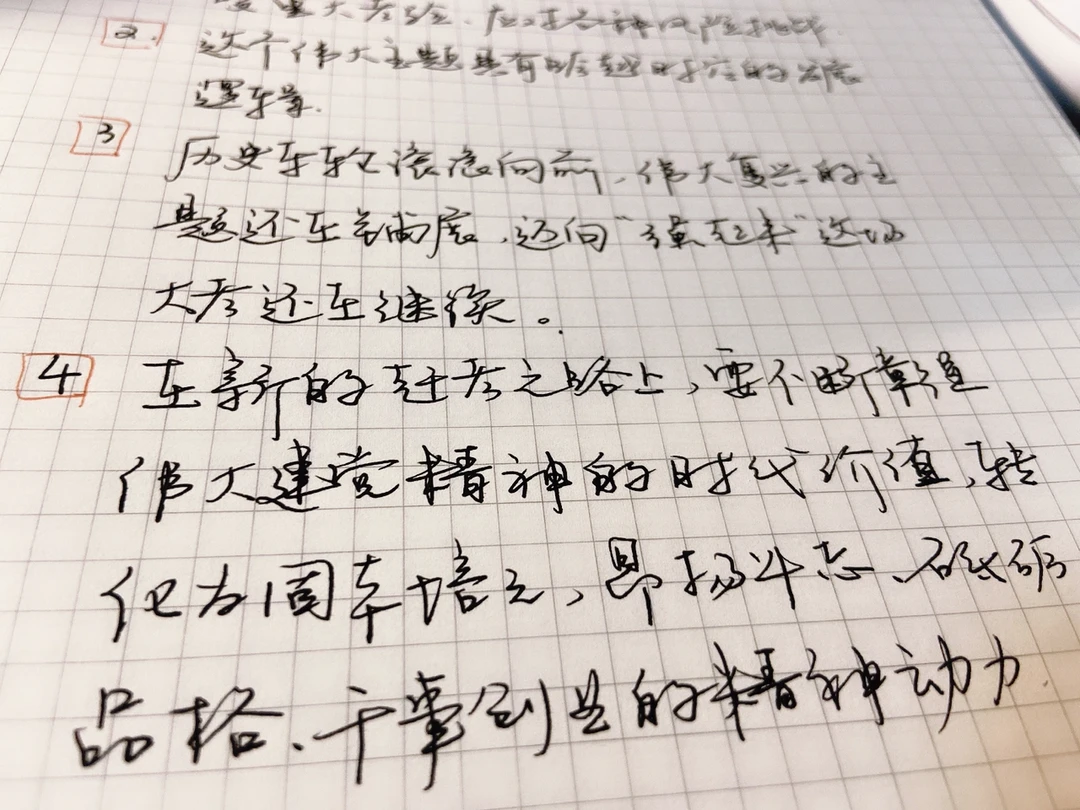 重大考验、应对各种风险挑战
2. 这个伟大主题具有跨越时空的深
邃内涵.
3 历史车轮滚滚向前,伟大复兴的主
题还在书写,迈向“强起来”这场
大考还在继续。
4 在新的赶考之路上,要不断彰显
伟大建党精神的时代价值,转
化为固本培元,昂扬斗志、砥砺
品格、干事创业的精神动力.